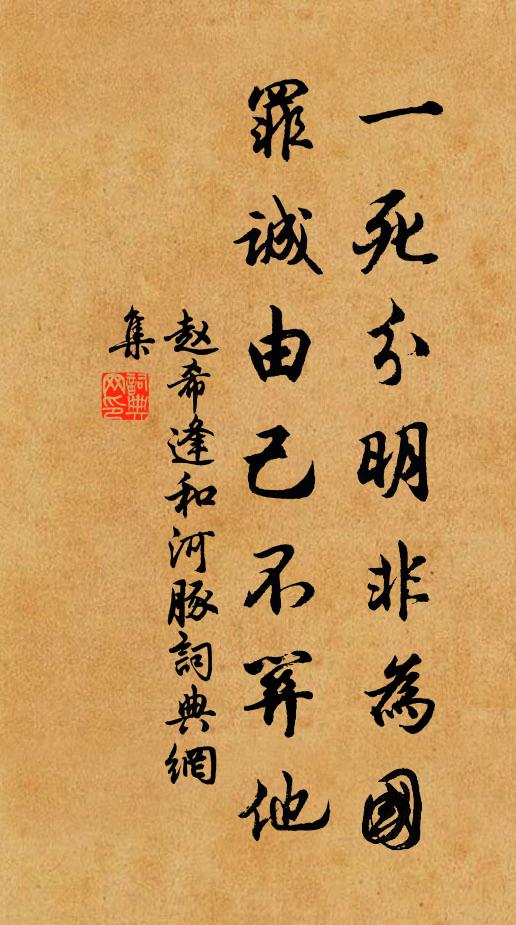 一死分明非為國
罪誠由己不關他
赵希逢和河豚詞典網
集
詞典
网印